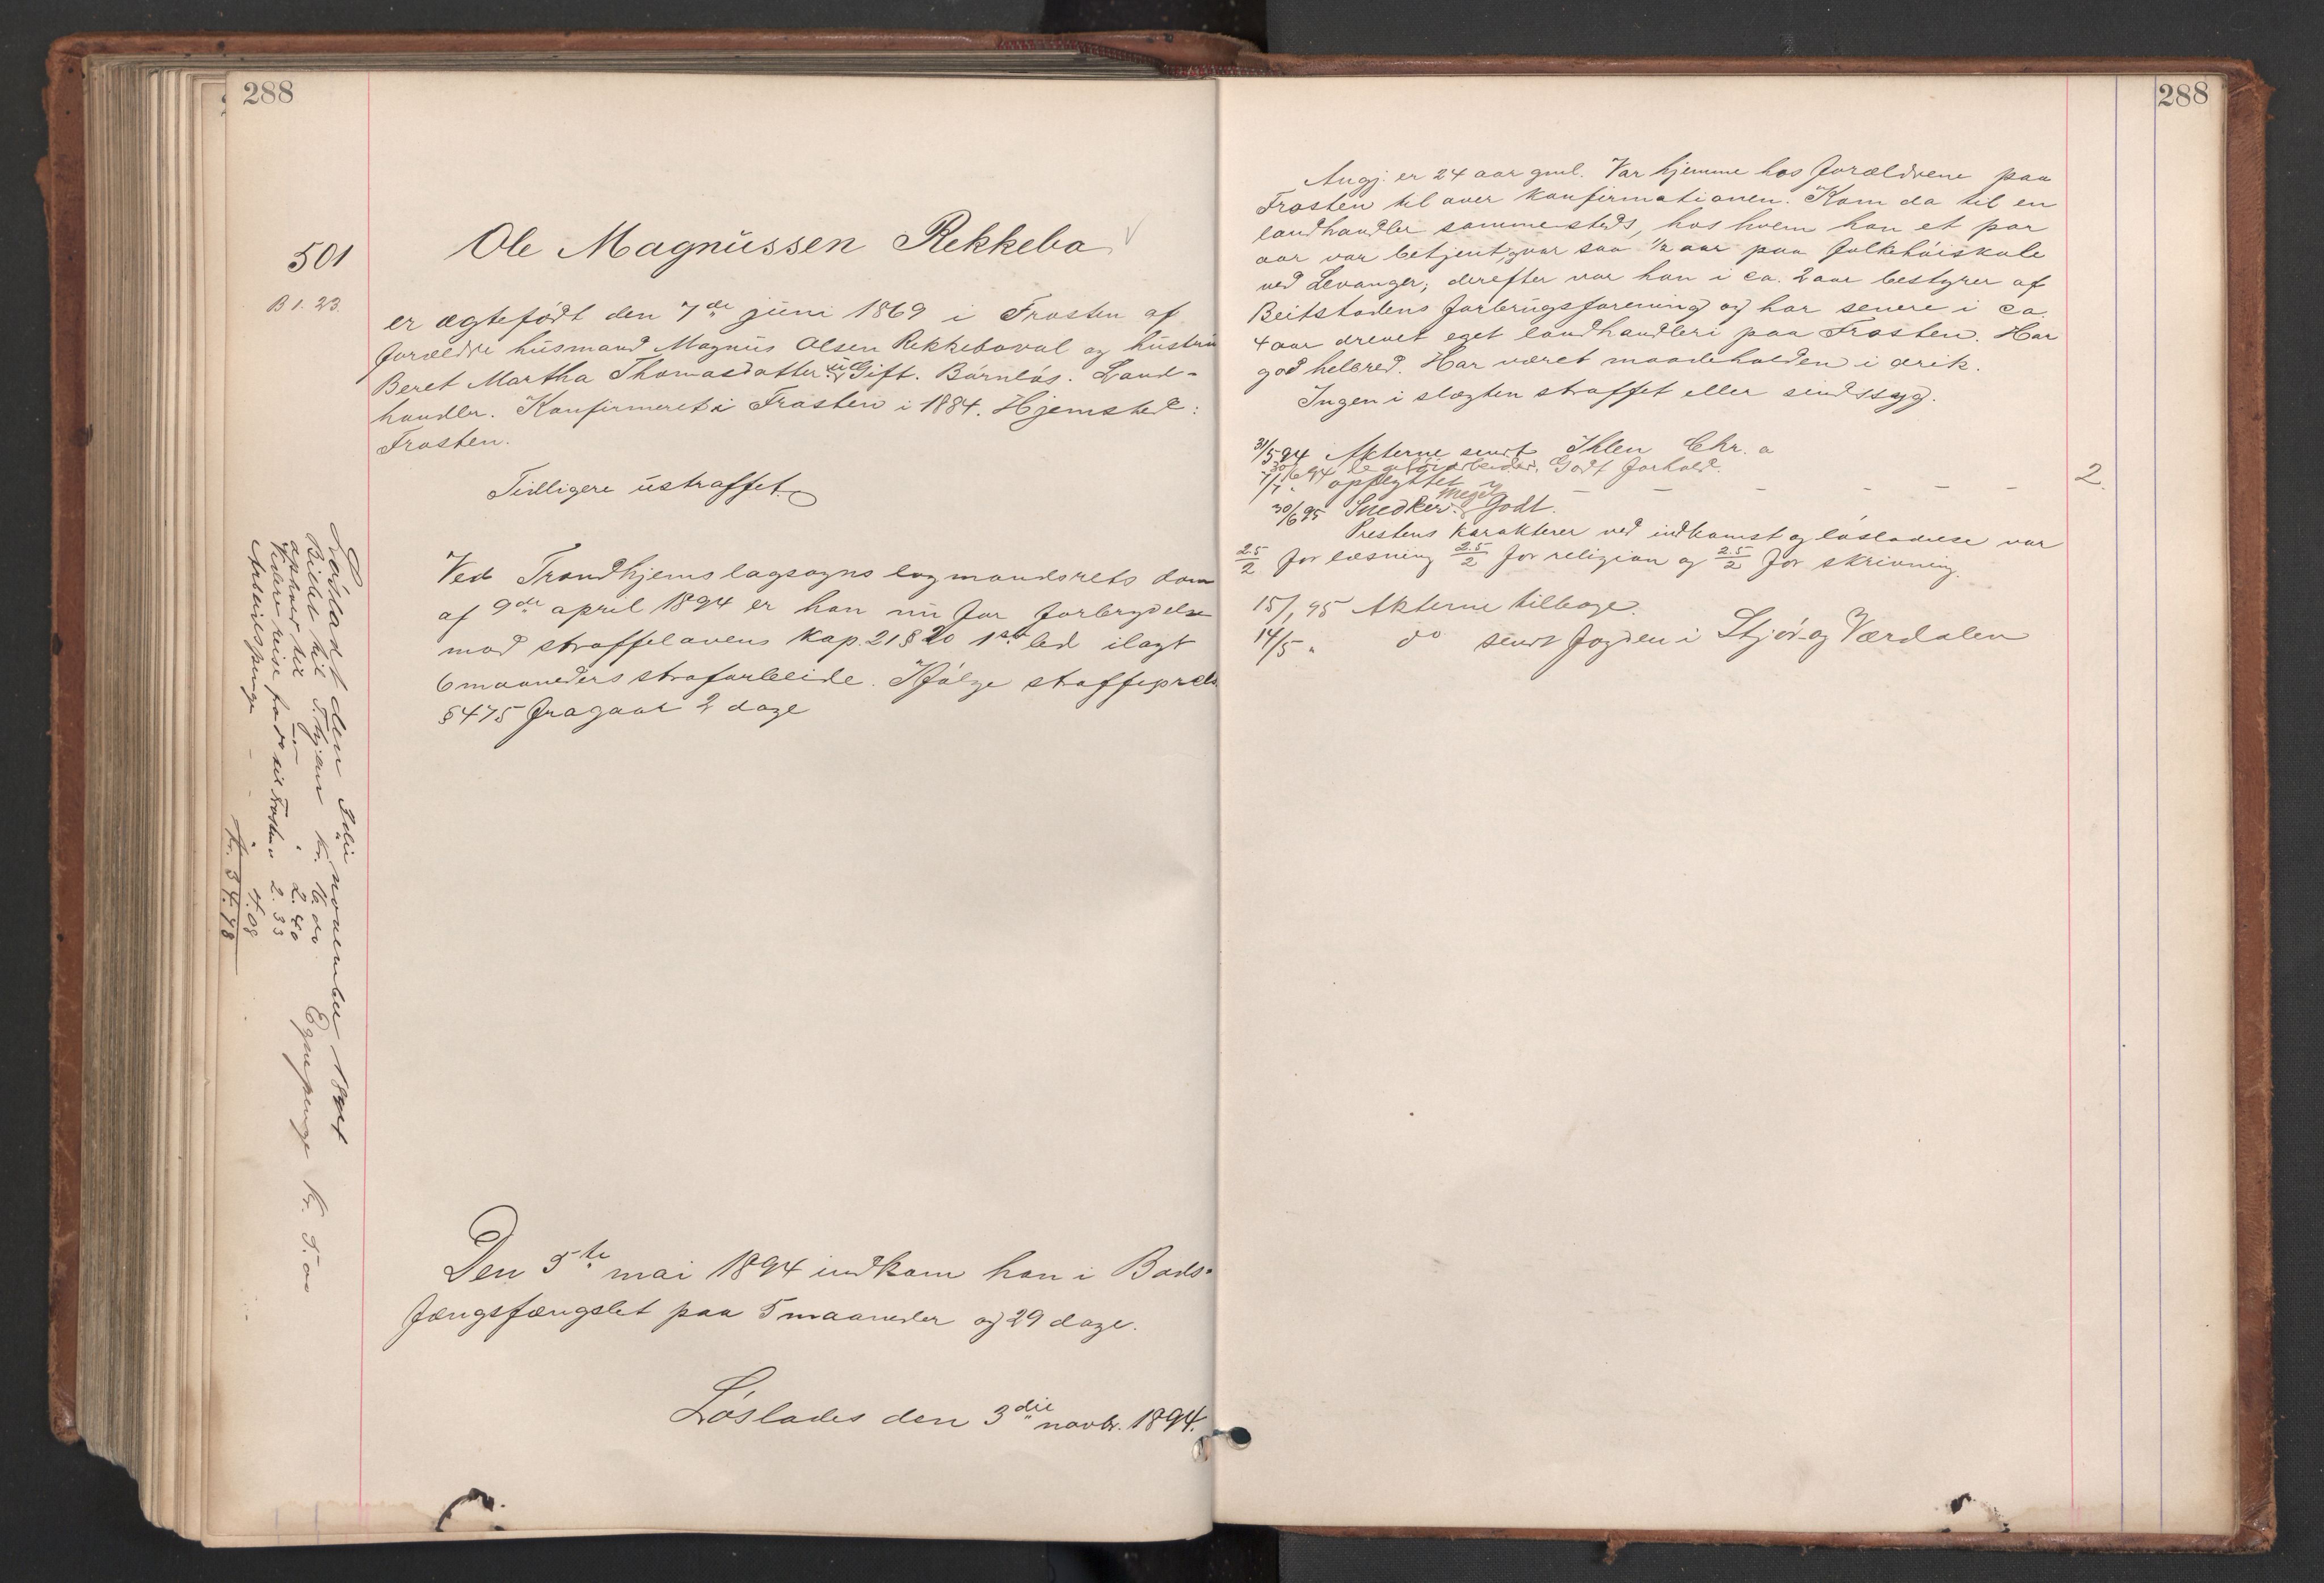 288
501
B 1. 23.
Ole Magnussen Rekkebo
er ægtefødt den 7de juni 1869 i Frosten af
forældre husmand Magnus Olsen Rekkeboval og hustru
Beret Martha Thomasdatter. Gift. Barnløs. Land-
handler. Konfirmeret i Frosten i 1884. Hjemsted:
Frosten.
Tidligere ustraffet.
Ved Trondhjems lagsogns lagmandsrets dom
af 9de april 1894 er han nu for forbrydelse
mod straffelovens kap. 21 § 20 1ste led ilagt
6 maaneders strafarbeide. Ifølge straffeprcls.
§ 475 fragaar 2 dage
Den 5te mai 1894 indkom han i Bods-
fængsfængslet paa 5 maaneder og 29 dage.
Løslades den 3die novbr. 1894.
Løsladt den 3die november 1894
Billet til T.hjem kr. 16.00
ophold til — " 2.40
Videre reise fra do til Frosten " 2.33
Arbeidspenge - - " 4.08
Egne penge kr. 5.00
288
Angj. er 24 aar gml. Var hjemme hos forældrene paa
Frosten til over konfirmationen. Kom da til en
landhandler sammesteds, hos hvem han et par
aar var betjent, var saa 1/2 aar paa folkehøiskole
ved Levanger; derefter var han i ca. 2 aar bestyrer af
Beitstadens forbrugsforening og har senere i ca.
4 aar drevet eget landhandleri paa Frosten. Har
god helbred. Har været maadeholden i drik.
Ingen i slægten straffet eller sindssyg.
31/5 94 Akterne sendt Ihlen Chr. a
30/6 94 Godt forhold.
7/7 " opflyttet — — — — — — 2.
30/6 95 Snedker. Meget Godt.
Prestens karakterer ved indkomst og løsladelse var
2.5/2 for læsning 2.5/2 for religion og 2.5/2 for skrivning.
15/1 95 Akterne tilbage.
14/5 " do sendt fogden i Stjør- og Værdalen